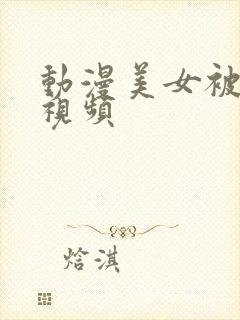 動漫美女被
視頻
焓淇